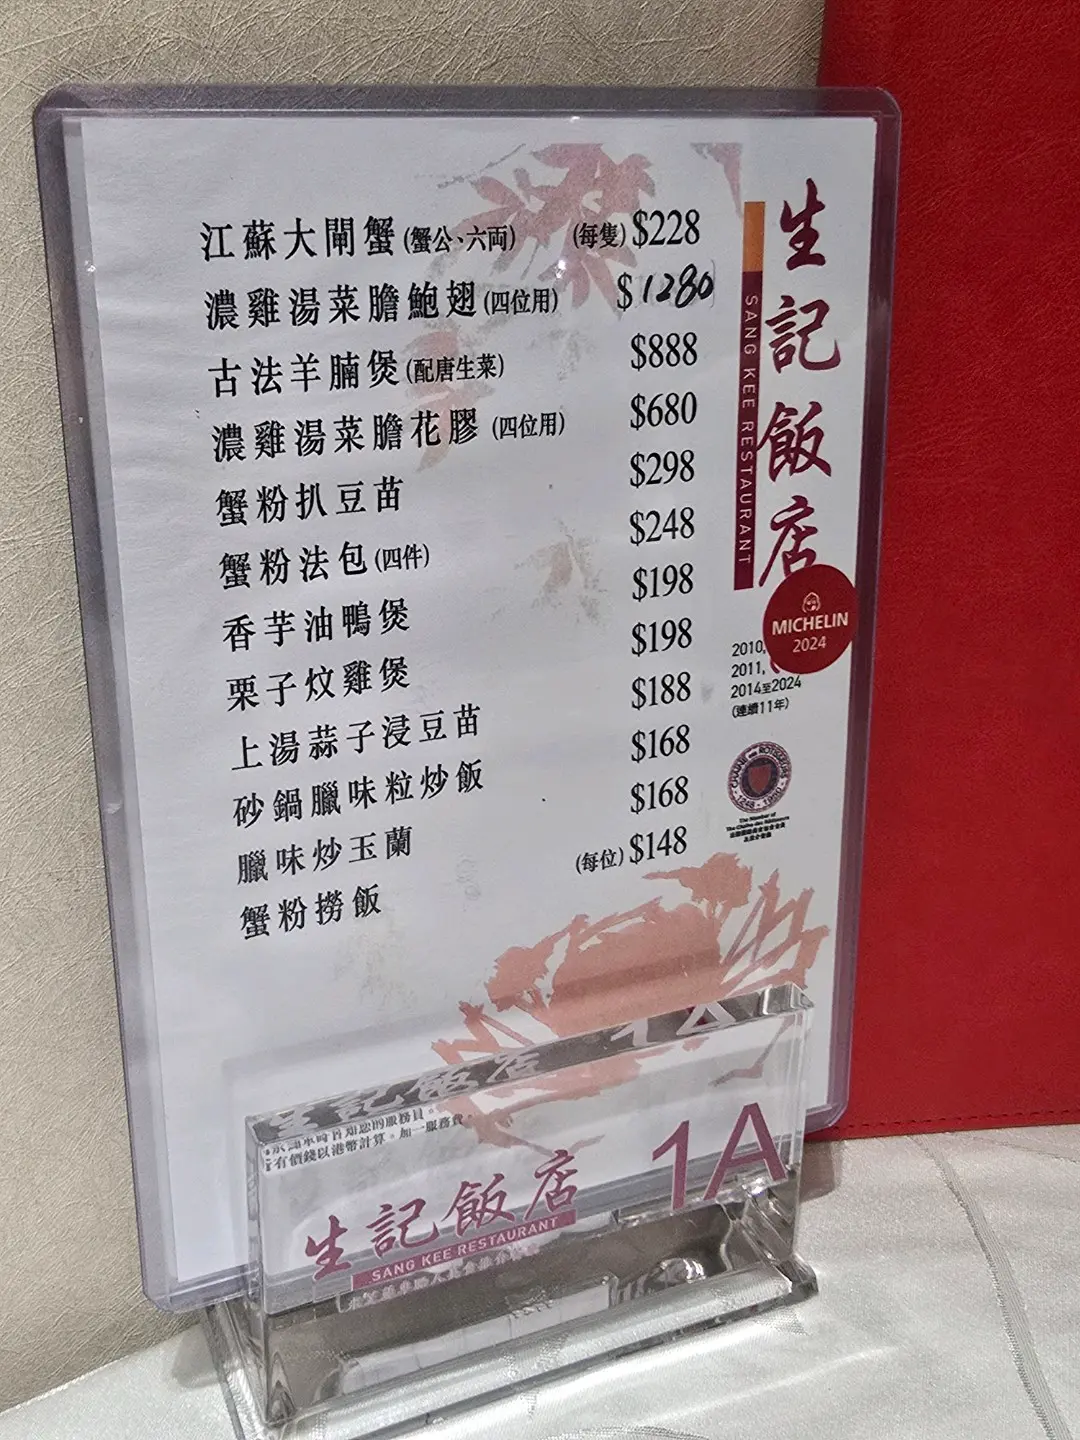 江蘇大閘蟹(蟹公、六両) (每隻)$228
濃雞湯菜膽鮑翅(四位用) $1280
古法羊腩煲(配唐生菜) $888
濃雞湯菜膽花膠(四位用) $680
蟹粉扒豆苗 $298
蟹粉法包(四件) $248
香芋油鴨煲 $198
栗子炆雞煲 $198
上湯蒜子浸豆苗 $188
砂鍋臘味粒炒飯 $168
臘味炒玉蘭 $168
蟹粉撈飯 (每位)$148
生記飯店
SANG KEE RESTAURANT
MICHELIN
2024
2010,
2011,
2014至2024
(連續11年)
The Member of
的服務員。
有價錢以港幣計算。加一服務費。
1A
生記飯店
SANG KEE RESTAURANT